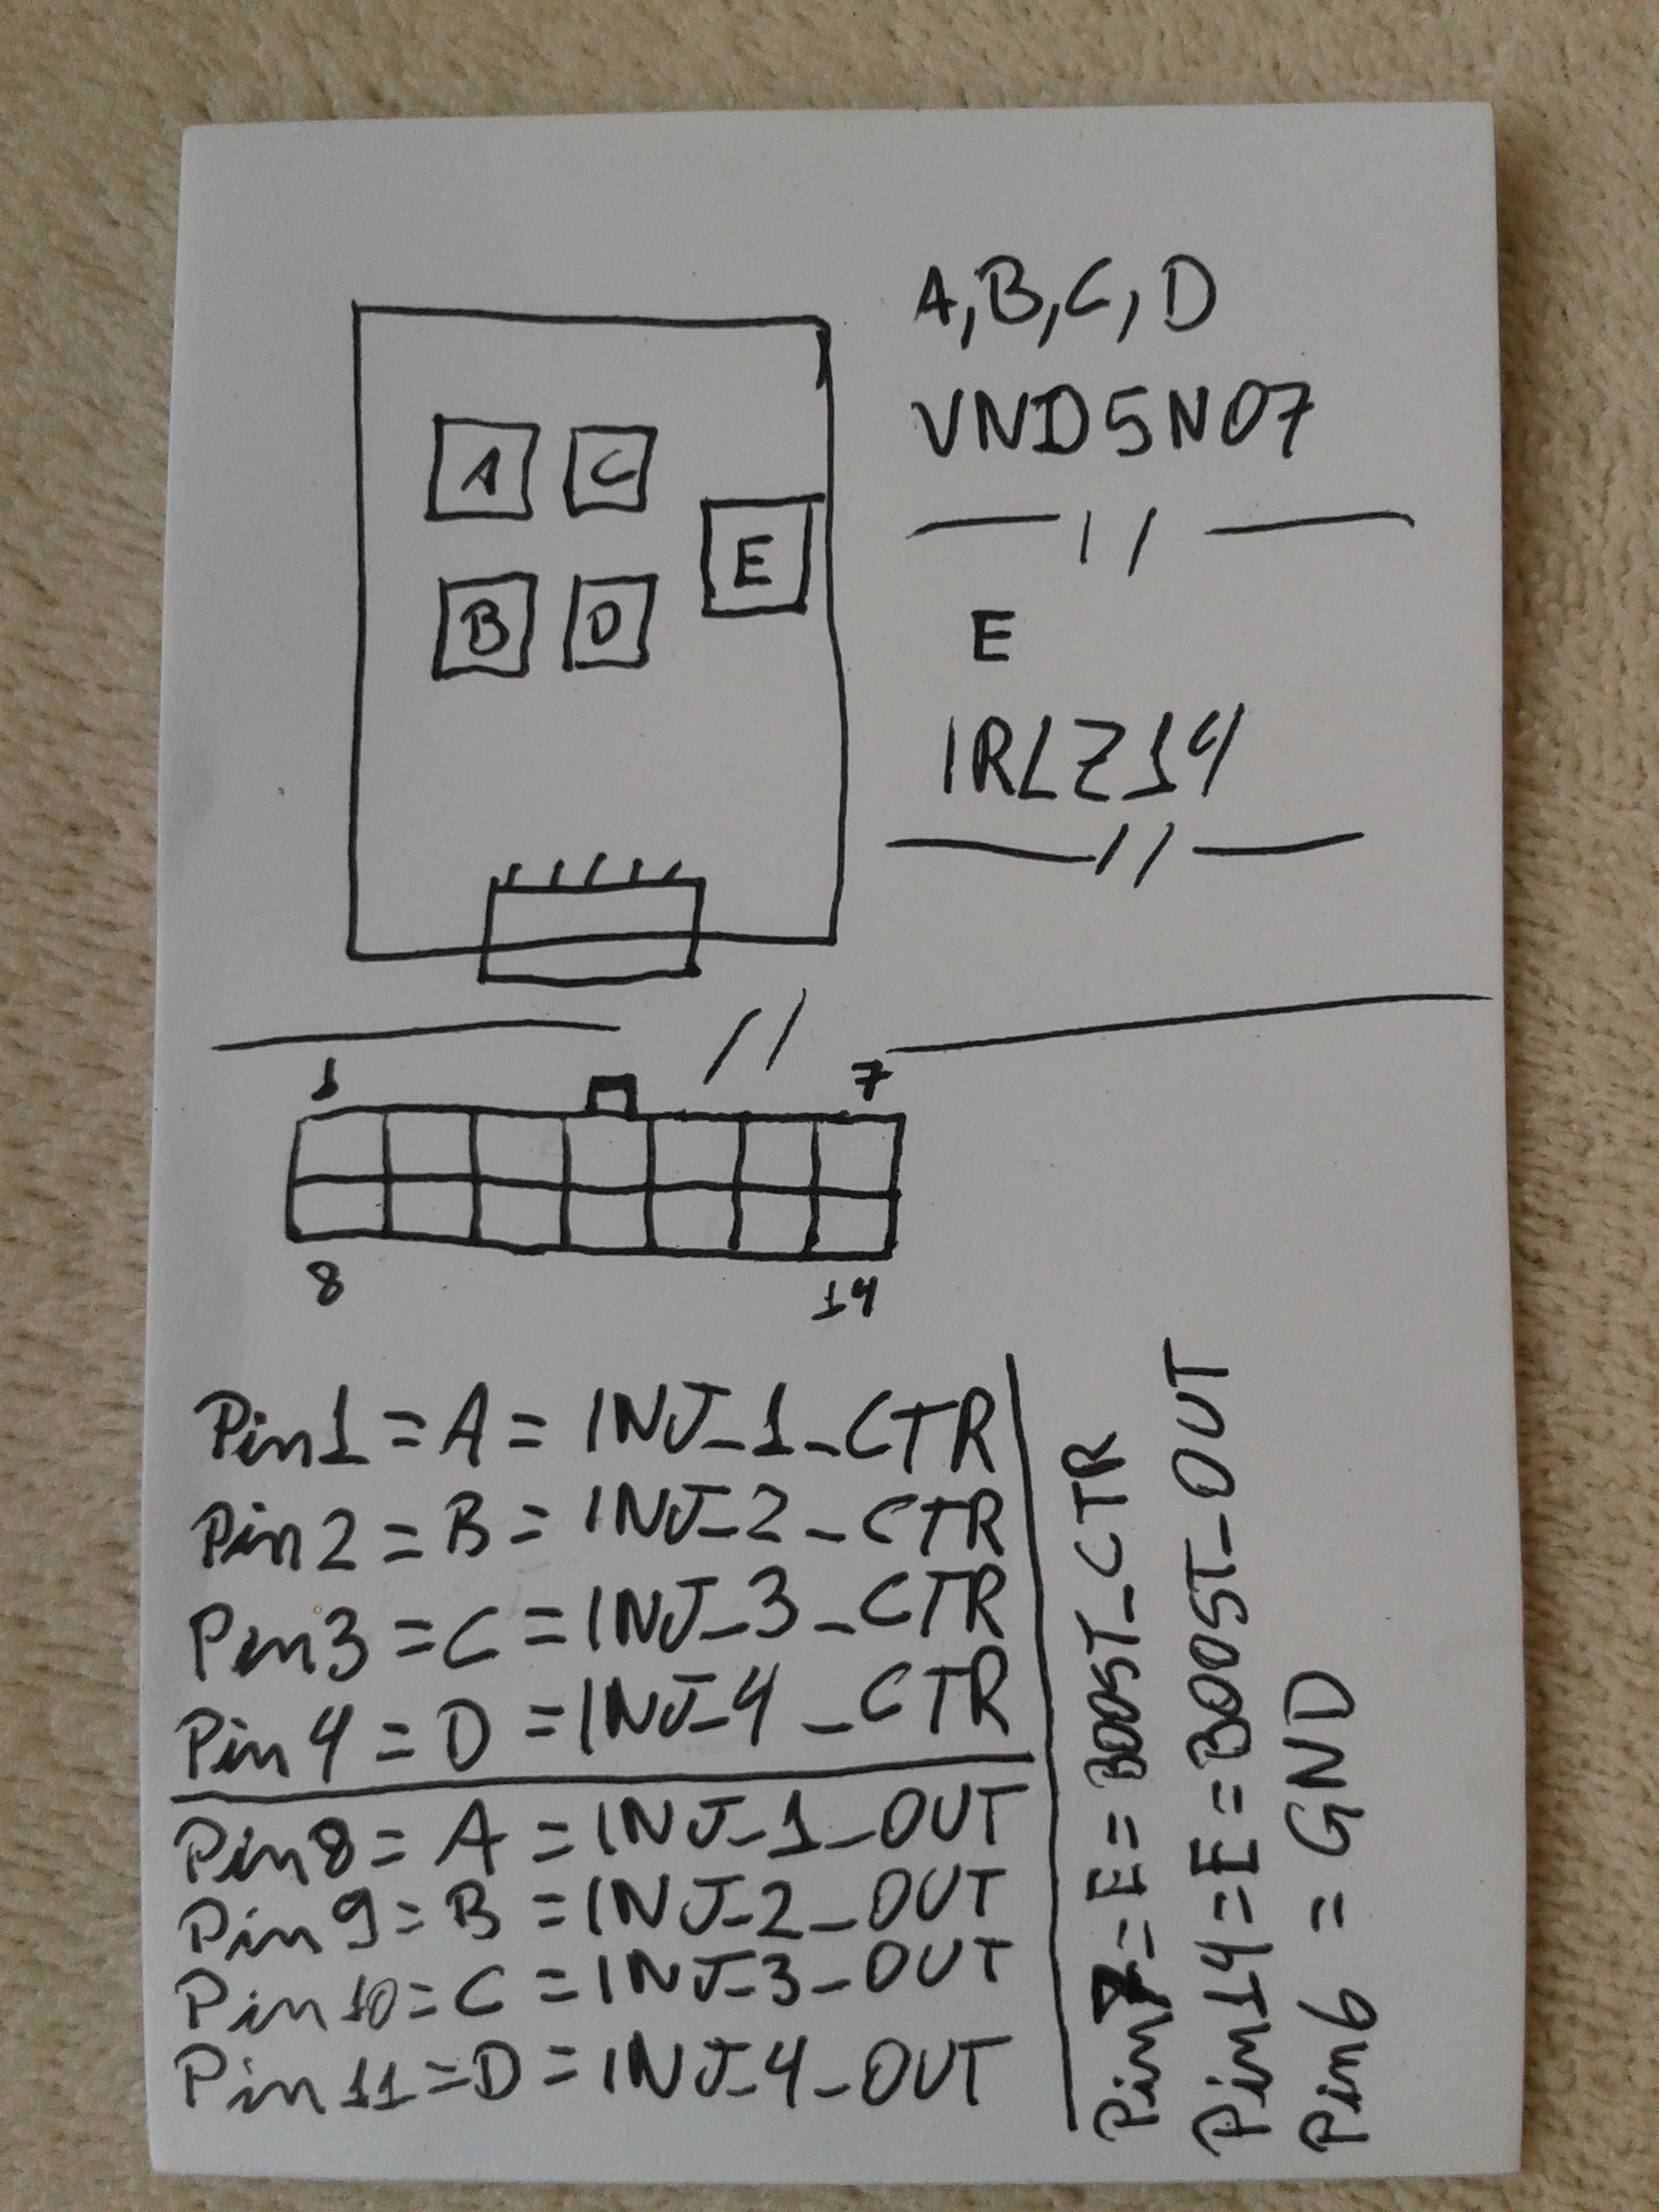 A,B,C,D
VND5N07
A C
E
B D
E
IRLZ14
1 7
8 14
Pin1 = A = INJ_1_CTR
Pin2 = B = INJ_2_CTR
Pin3 = C = INJ_3_CTR
Pin4 = D = INJ_4_CTR
Pin8 = A = INJ_1_OUT
Pin9 = B = INJ_2_OUT
Pin10 = C = INJ_3_OUT
Pin11 = D = INJ_4_OUT
Pin7 = E = BOOST_CTR
Pin14 = E = BOOST_OUT
Pin6 = GND